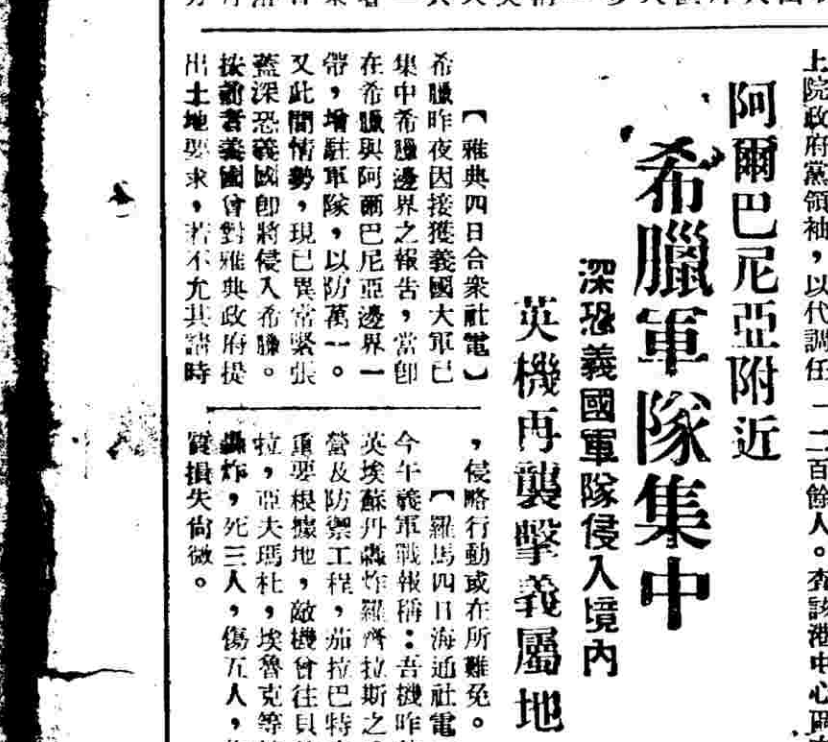 上院政府黨領袖，以代調任一二百餘人。查該港中心區
阿爾巴尼亞附近
希臘軍隊集中
深恐義國軍隊侵入境內
英機再襲擊義屬地
【雅典四日合衆社電】
希臘昨夜因接獲義國大軍已
集中希臘邊界之報告，當卽
在希臘與阿爾巴尼亞邊界一
帶，增駐軍隊，以防萬一。
又此間情勢，現已異常緊張
蓋深恐義國卽將侵入希臘。
按前者義國曾對雅典政府提
出土地要求，若不允其請時
，侵略行動或在所難免。
【羅馬四日海通社電
今午義軍戰報稱：吾機昨
英埃蘇丹轟炸羅齊拉斯之
營及防禦工程，茄拉巴特
重要根據地，敵機曾往貝
拉，亞夫瑪杜，埃魯克等
轟炸，死三人，傷五人，
質損失尙微。